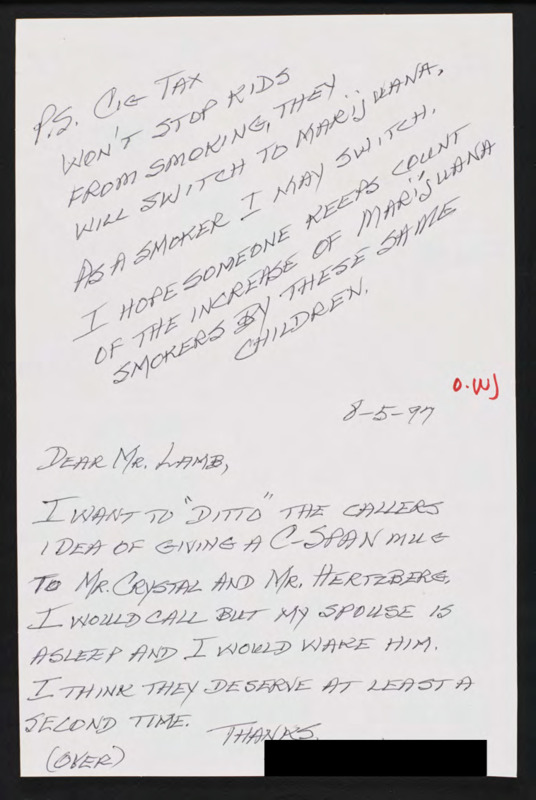 P.S. CIG TAX
WON'T STOP KIDS
FROM SMOKING, THEY..
WILL SWITCH TO MARIJUANA,
AS A SMOKER I MAY SWITCH.
I HOPE SOMEONE KEEPS COUNT
OF THE INCREASE OF MARIJUANA
SMOKERS BY THESE SAME
CHILDREN.
O.WJ
8-5-97
DEAR MR. LAMB,
I WANT TO "DITTO" THE CALLERS
IDEA OF GIVING A C-SPAN MUG
TO MR. CRYSTAL AND MR. HERTZBERG.
I WOULD CALL BUT MY SPOUSE IS
ASLEEP AND I WOULD WAKE HIM.
I THINK THEY DESERVE AT LEAST A
SECOND TIME.
THANKS.
(OVER)